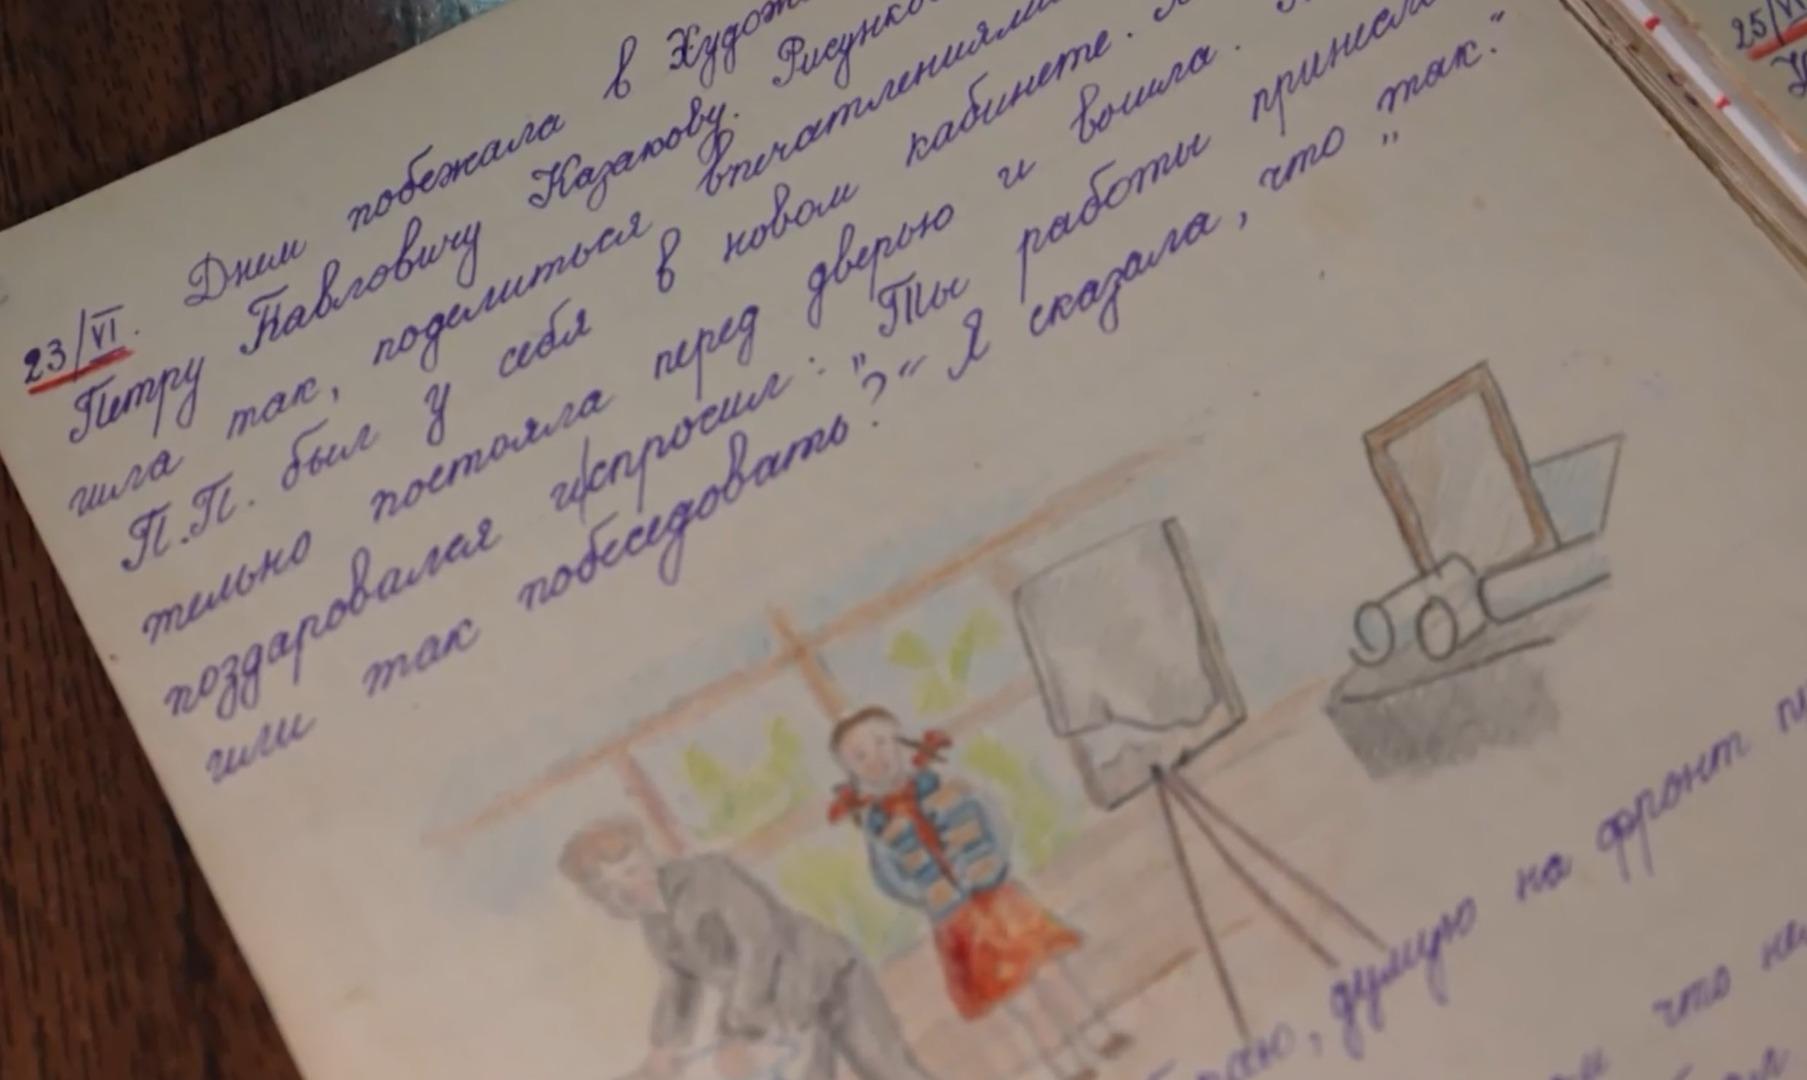 23/VI. Днем побежала в Худож
Петру Павловичу Казакову. Рисунко
шла так, поделиться впечатлениями
П.П. был у себя в новом кабинете.
тельно постояла перед дверью и вошла.
поздоровался и спросил: "Ты работы принесла
или так побеседовать?" Я сказала, что "так."
думую на фронт
что не
25/VI